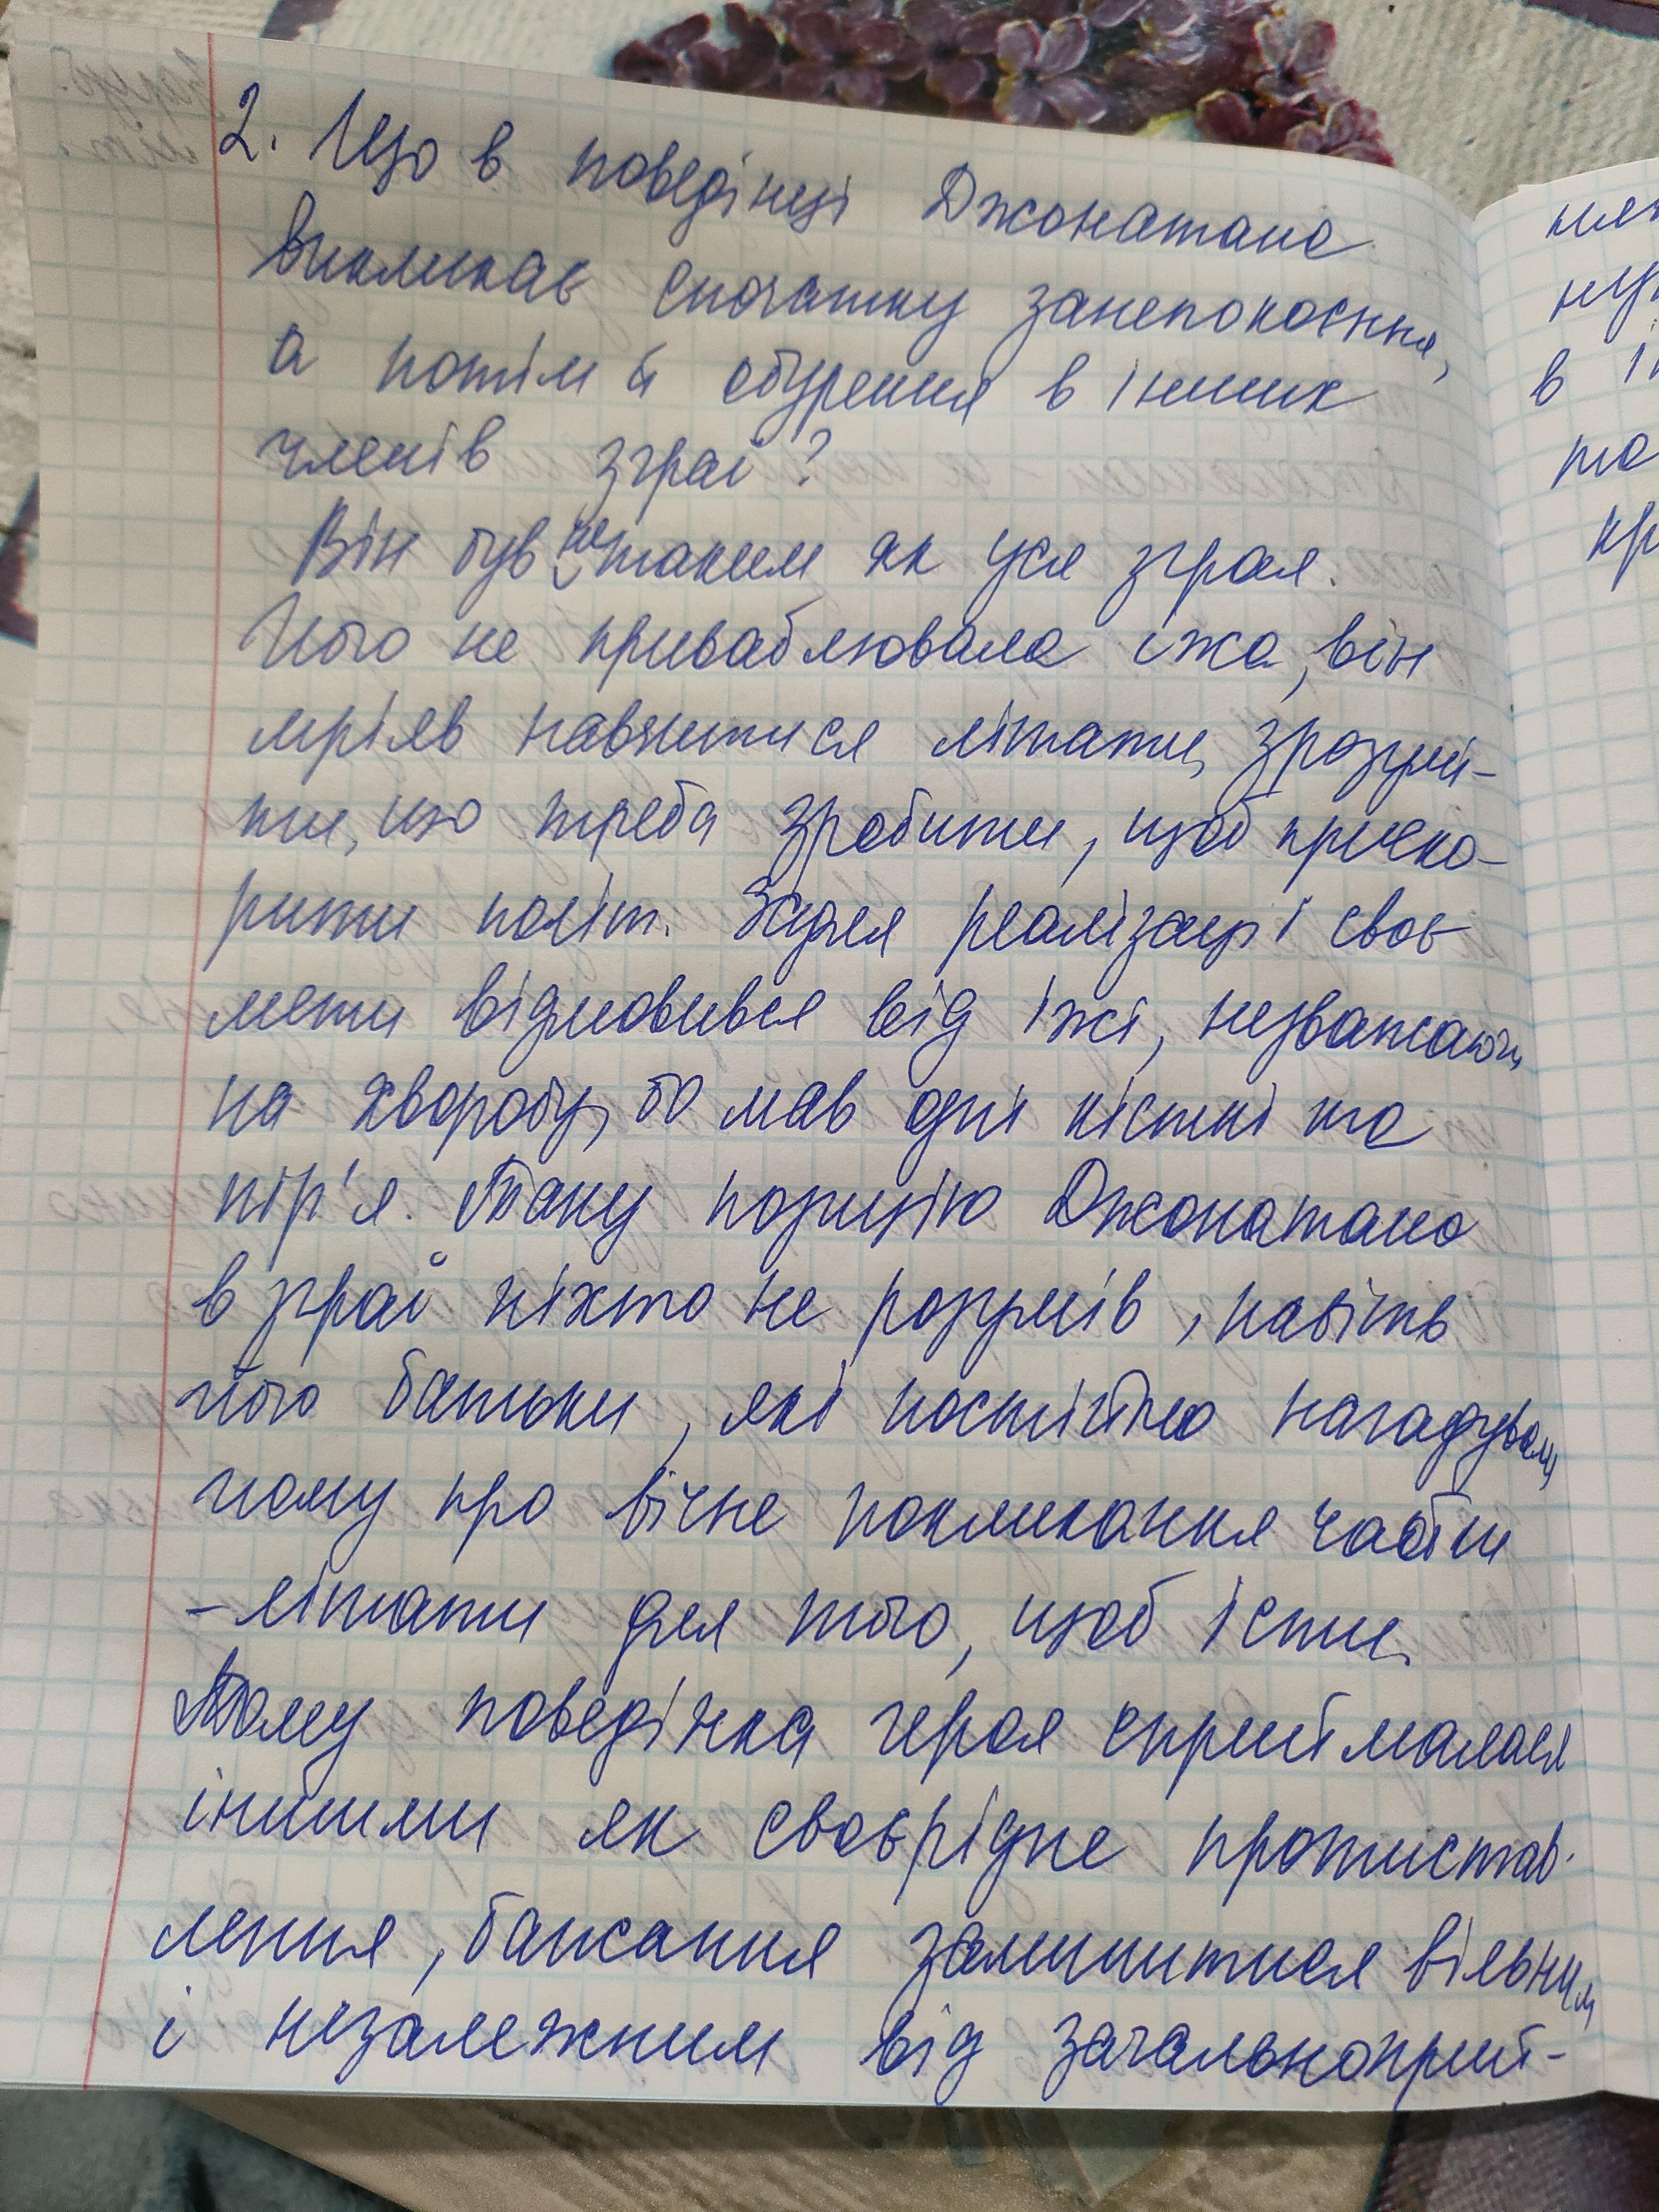 2. Що в поведінці Джонатана
викликає спочатку занепокоєння,
а потім й обурення в інших
членів зграї?
Він був не таким як уся зграя.
Його не приваблювала їжа, він
мріяв навчитися літати, зрозумі-
ти, що треба зробити, щоб приско-
рити політ. Задля реалізації своє
мети відмовився від їжі, незважаючи
на хворобу, бо мав одні кістки та
пір'я. Таку позицію Джонатана
в зграї ніхто не розумів, навіть
його батьки, які постійно нагадували
йому про вічне покликання чайки
- літати для того, щоб їсти.
Тому поведінка героя сприймалася
іншими як своєрідне протистав-
лення, бажання залишитися вільним
і незалежним від загальноприй-
ня
ну
в
та
кр